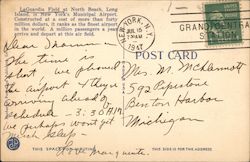 LaGuardia Field at North Beach, Long
Island, is New York's Municipal Airport.
Constructed at a cost of more than forty
million dollars, it ranks as the finest airport
in the world. A million passengers a year
arrive and depart at this air field.
NEW YORK, N.Y.
JUL 15
1947
GRAND
POST CARD
Dear
The time is
short we phoned
the airport & they
arriving ahead of
schedule - 3:30 A.M. so
we perhaps won't get
much sleep.
Love Marguerite.
Mrs. M. McDermott
592 Pipestone
Benton Harbor
Michigan
THIS SPACE FOR WRITING
THIS SIDE IS FOR THE ADDRESS